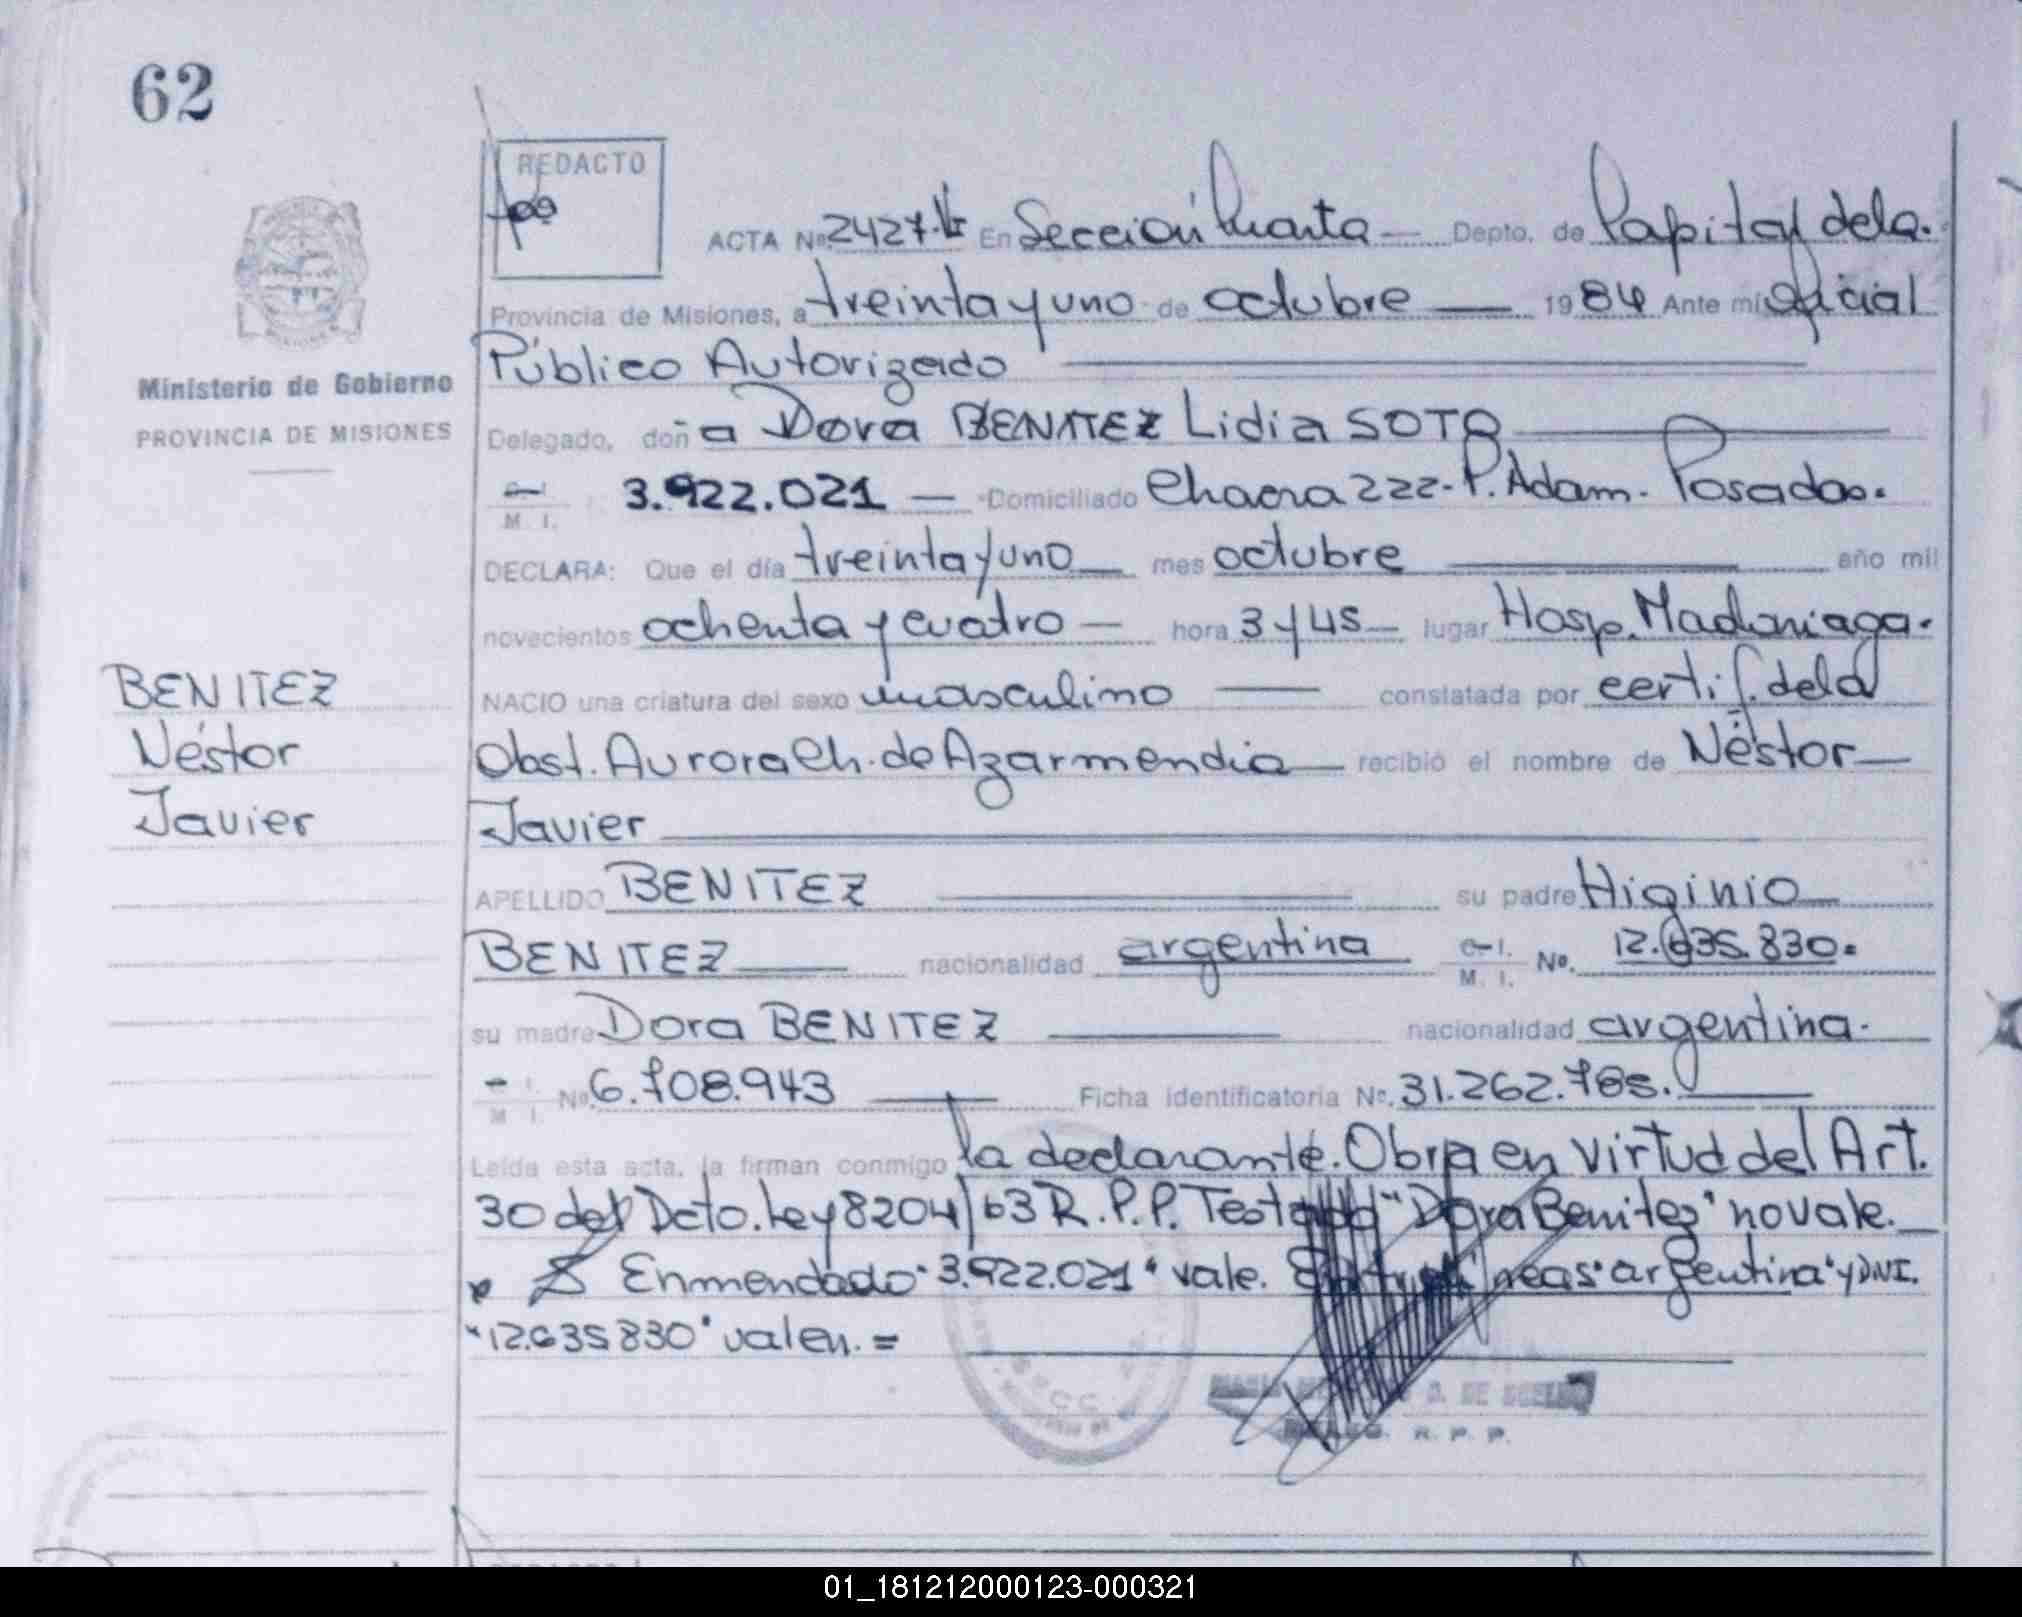 62
REDACTO
ACTA Nº 2427. En Sección Cuarta — Depto. de Capital de la
Provincia de Misiones, a treinta y uno de octubre — 1984 Ante mi Oficial
Público Autorizado
Ministerio de Gobierno
PROVINCIA DE MISIONES
Delegado, doña Dora BENITEZ Lidia SOTO
M. I. 3.922.021 — Domiciliado Chacra 222-P. Adam. Posadas.
DECLARA: Que el día treinta y uno — mes octubre — año mil
novecientos ochenta y cuatro — hora 3 y 45 — lugar Hosp. Madariaga.
NACIO una criatura del sexo masculino — constatada por certif. de la
Obst. Aurora Ch. de Azarmendia — recibió el nombre de Néstor —
Javier
BENITEZ
Néstor
Javier
APELLIDO BENITEZ — su padre Higinio
BENITEZ — nacionalidad argentina C. I. M. I. No. 12.635.830.
su madre Dora BENITEZ — nacionalidad argentina.
M I. Nº 6.708.943 — Ficha identificatoria Nº. 31.262.785.
Leída esta acta, la firman conmigo la declarante. Obra en virtud del Art.
30 del Dcto. Ley 8204/63 R.P.P. Testado "Dora Benitez" no vale.
Enmendado "3.922.021" vale. líneas "argentina" y DNI.
"12.635830" valen. =
SECC.
D. DE
R. P. P.
01_181212000123-000321